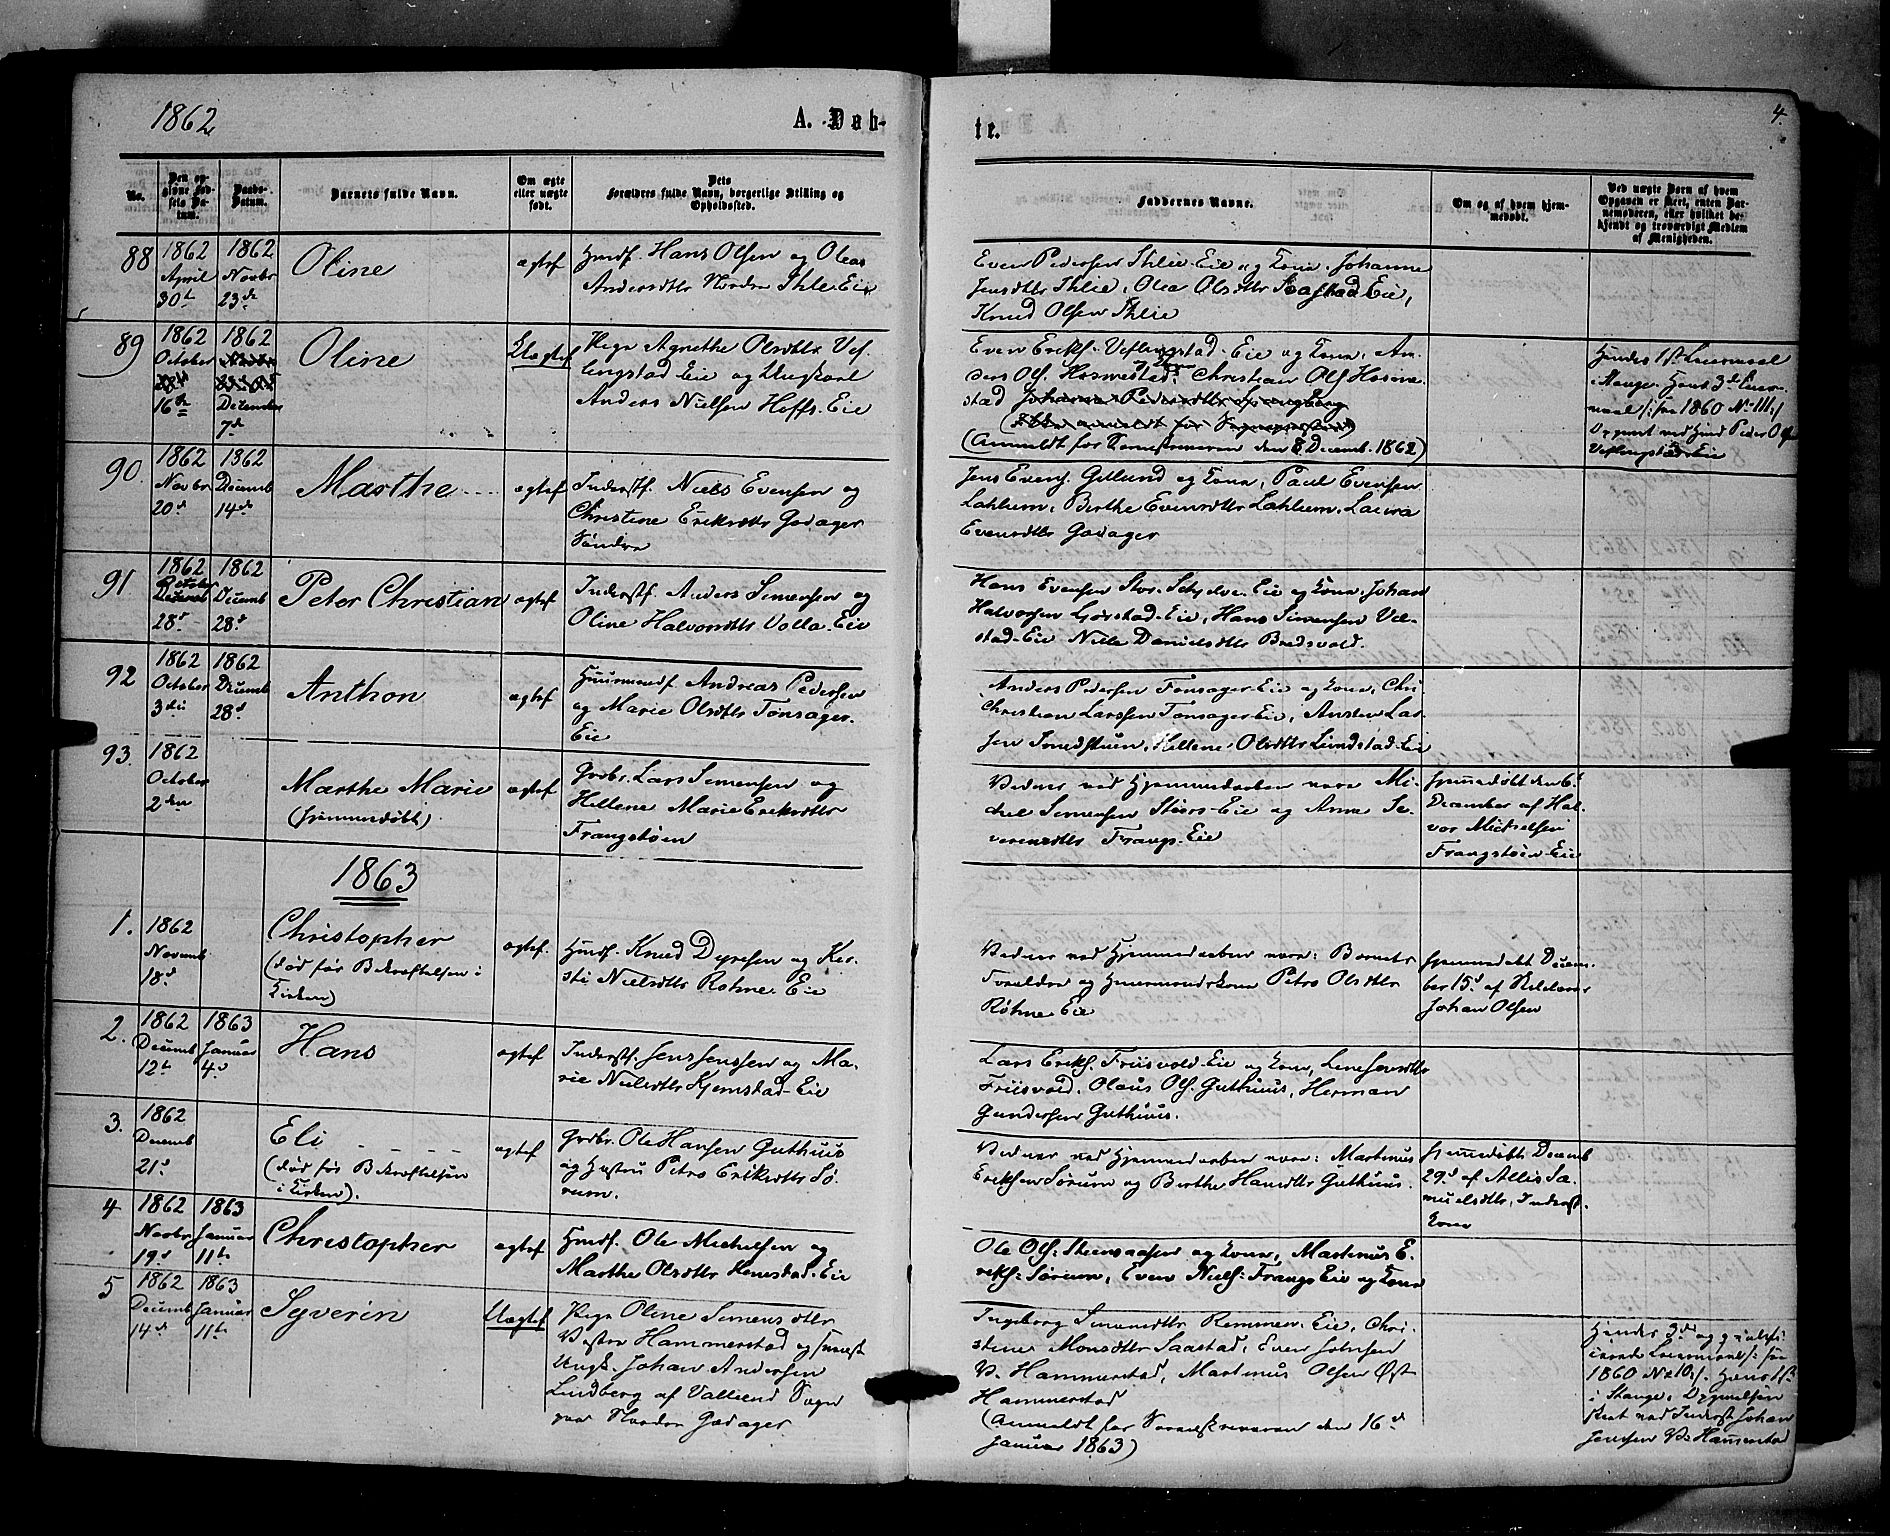 1862
A. Døb-
te.
4.
No.
Den op-
givne Fød-
sels Da-
tum.
Daabs-
Datum.
Barnets fulde Navn.
Om ægte
eller uægte
født.
Dets
Forældres fulde Navn, borgerlige Stilling og
Opholdssted.
Faddernes Navne.
Om og af hvem hjem-
medøbt.
Ved uægte Børn af hvem
Opgaven er skeet, enten Bar-
nemoderen, eller hvilket be-
kjendt og troværdigt Medlem
af Menigheden.
88
1862
April
30te
1862
Novbr
23de
Oline
ægtef
Huusf. Hans Olsen og Olea
Andersdtr Nordre Ihle-Eie
Even Pedersen Ihle-Eie og Kone, Johanne
Jensdtr Ihle, Olea Olsdtr Saastad-Eie,
Knud Olsen Ihle
89
1862
October
16de
1862
December
7de
Oline
Uægtef
Pige Agnethe Olsdtr Vef-
lingstad Eie og Ungkarl
Anders Nielsen Hoffs-Eie
Even Eriks. Veflingstad-Eie og Kone, An-
ders Ols. Hosmestad, Christian Ols. Hosme
stad Johanne Pedersdtr
(Anmeldt for Sorenskriveren den 8 Decemb. 1862)
Hendes 1ste Leiermaal
i Stange. Hans 3die Leier-
maal /:for 1860 No 111:/
Opgivet ved Huusf Peder Ols
Veflingstad Eie
90.
1862
Novbr
20de
1862
Decemb
14de
Marthe
ægtef
Inderstf. Niels Evensen og
Christine Eriksdtr Godager
Søndre
Jens Evens. Gillund og Kone, Paul Evensen
Lahlum, Berthe Evensdtr Lahlum, Laura
Evensdtr Godager
91
1862
October
28de
1862
Decemb
28de
Peter Christian
ægtef
Inderstf. Anders Simensen og
Oline Halvorsdtr Volla-Eie
Hans Evensen Stor-Schjelve-Eie og Kone, Johan
Halvorsen Gjørstad-Eie, Hans Simensen Val-
stad-Eie Nille Danielsdtr Bredvold.
92
1862
October
3die
1862
Decemb
28de
Anthon
ægtef
Huusmandf. Andreas Pedersen
og Marie Olsdtr Tønsager-
Eie
Anders Pedersen Tønsager-Eie og Kone, Chri
Christian Larssen Tønsager-Eie, Anders Lar-
sen Smedstuen, Hellene Olsdtr Lundstad-Eie
93.
1862
October
2den
Marthe Marie
(hjemmedøbt)
ægtef
Grdbr. Lars Simensen og
Hellene Marie Eriksdtr
Frangstøen
Vidner ved Hjemmedaaben vare Mi-
chel Simensen Stoers-Eie og Anne Se-
verinsdtr Frangs-Eie
Hjemmedøbt den 6te
December af Hal-
vor Michelsen
Frangstøen-Eie
1863
1.
1862
Novemb
18de
Christopher
(død før Bekræftelsen i
Kirken)
ægtef.
Huusf. Knud Dyresen og Ker-
sti Nielsdtr Rohne-Eie
Vidner ved Hjemmedaaben vare: Barnets
Forældre og Huusmandskone Petro Olsdtr
Røhne-Eie
Hjemmedøbt Decem-
ber 15de af
Johan Olsen
2.
1862
Decemb
12te
1863
Januar
4de
Hans
ægtef
Inderstf. Jens Jenssen og Ma-
rie Nielsdtr Kjemstad-Eie
Lars Eriks. Friisvold-Eie og Kone, Lene Jensdtr
Friisvold, Olaus Ols. Guthuus, Herman
Gundersen Guthuus.
3.
1862
Decemb
21de
Eli
(død før Bekræftelsen
i Kirken).
ægtef
Grdbr. Ole Hansen Guthuus
og Hustru Petro Eriksdtr Sø-
rum.
Vidner ved Hjemmedaaben vare: Martinus
Eriksen Sørum og Berthe Hansdtr Guthuus.
Hjemmedøbt Decemb
29de af Allis Sa-
muelsdtr, Inderst-
kone
4
1862
Novbr
19de
1863
Januar
11te
Christopher
ægtef
Huusf. Ole Michelsen og
Marthe Olsdtr Hemstad-Eie
Ole Ols: Steensaasen og Kone, Martinus E-
riks: Sørum, Even Niels: Frangs Eie og Kone
5
1862
Decemb
14de
1863
Januar
11te
Syverin
Uægtef
Pige Oline Simensdtr
Vestre Hammerstad og
Ungk. Johan Andersen
Lindberg af
paa Nordre Godager
Ingeborg Simensdtr Remmen-Eie, Chri-
stine Monsdtr Saastad, Even Johnsen
V. Hammerstad, Martinus Olsen Øst
Hammerstad
(Anmeldt for Sorenskriveren den 16de
Januar 1863)
Hendes 3die og
Leiermaal /:for
1860 No 10:/. Hans 1ste
i Stange. Opgivelsen
skeet ved Inderst Johan
Jensen V. Hammerstad